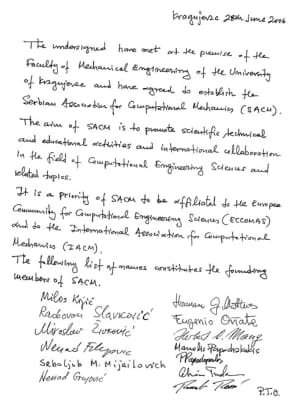 Kragujevac 28th June 2006
The undersigned have met at the premise of the
Faculty of Mechanical Engineering of the University
of Kragujevac and have agreed to establish the
Serbian Association for Computational Mechanics (SACM).
The aim of SACM is to promote scientific, technical
and educational activities and international collaboration
in the field of Computational Engineering Sciences and
related topics.
It is a priority of SACM to be affiliated to the European
Community for Computational Engineering Sciences (ECCOMAS)
and to the International Association for Computational
Mechanics (IACM).
The following list of names constitutes the founding
members of SACM.
Milos Kojić
Radovan Slavković
Miroslav Živković
Nenad Filipovic
Seboljub M. Mijailovich
Nenad Grujović
Hermann G. Matthies
Eugenio Oñate
Herbert A. Mang
Manolis Papadrakakis
P.T.O.